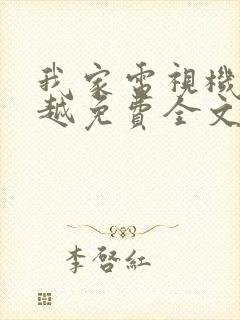 我家電視機
越免費全文
李啓紅